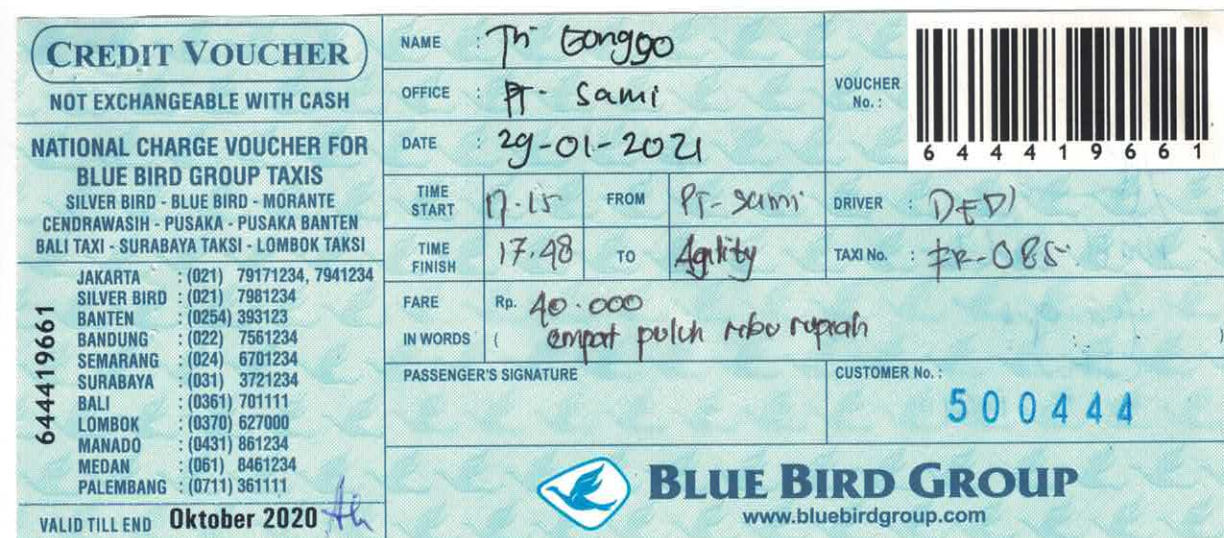 CREDIT VOUCHER
NOT EXCHANGEABLE WITH CASH
NATIONAL CHARGE VOUCHER FOR
BLUE BIRD GROUP TAXIS
SILVER BIRD - BLUE BIRD - MORANTE
CENDRAWASIH - PUSAKA - PUSAKA BANTEN
BALI TAXI - SURABAYA TAKSI - LOMBOK TAKSI
644419661
JAKARTA : (021) 79171234, 7941234
SILVER BIRD : (021) 7981234
BANTEN : (0254) 393123
BANDUNG : (022) 7561234
SEMARANG : (024) 6701234
SURABAYA : (031) 3721234
BALI : (0361) 701111
LOMBOK : (0370) 627000
MANADO : (0431) 861234
MEDAN : (061) 8461234
PALEMBANG : (0711) 361111
VALID TILL END Oktober 2020
NAME : Tri Gonggo
OFFICE : PT- Sami
DATE : 29-01-2021
VOUCHER No. :
644419661
TIME START 17.15 FROM PT-Sami DRIVER : DEDI
TIME FINISH 17.48 TO Agility TAXI No. : FR-085
FARE Rp. 40.000
IN WORDS ( empat puluh ribu rupiah )
PASSENGER'S SIGNATURE
CUSTOMER No. :
500444
BLUE BIRD GROUP
www.bluebirdgroup.com